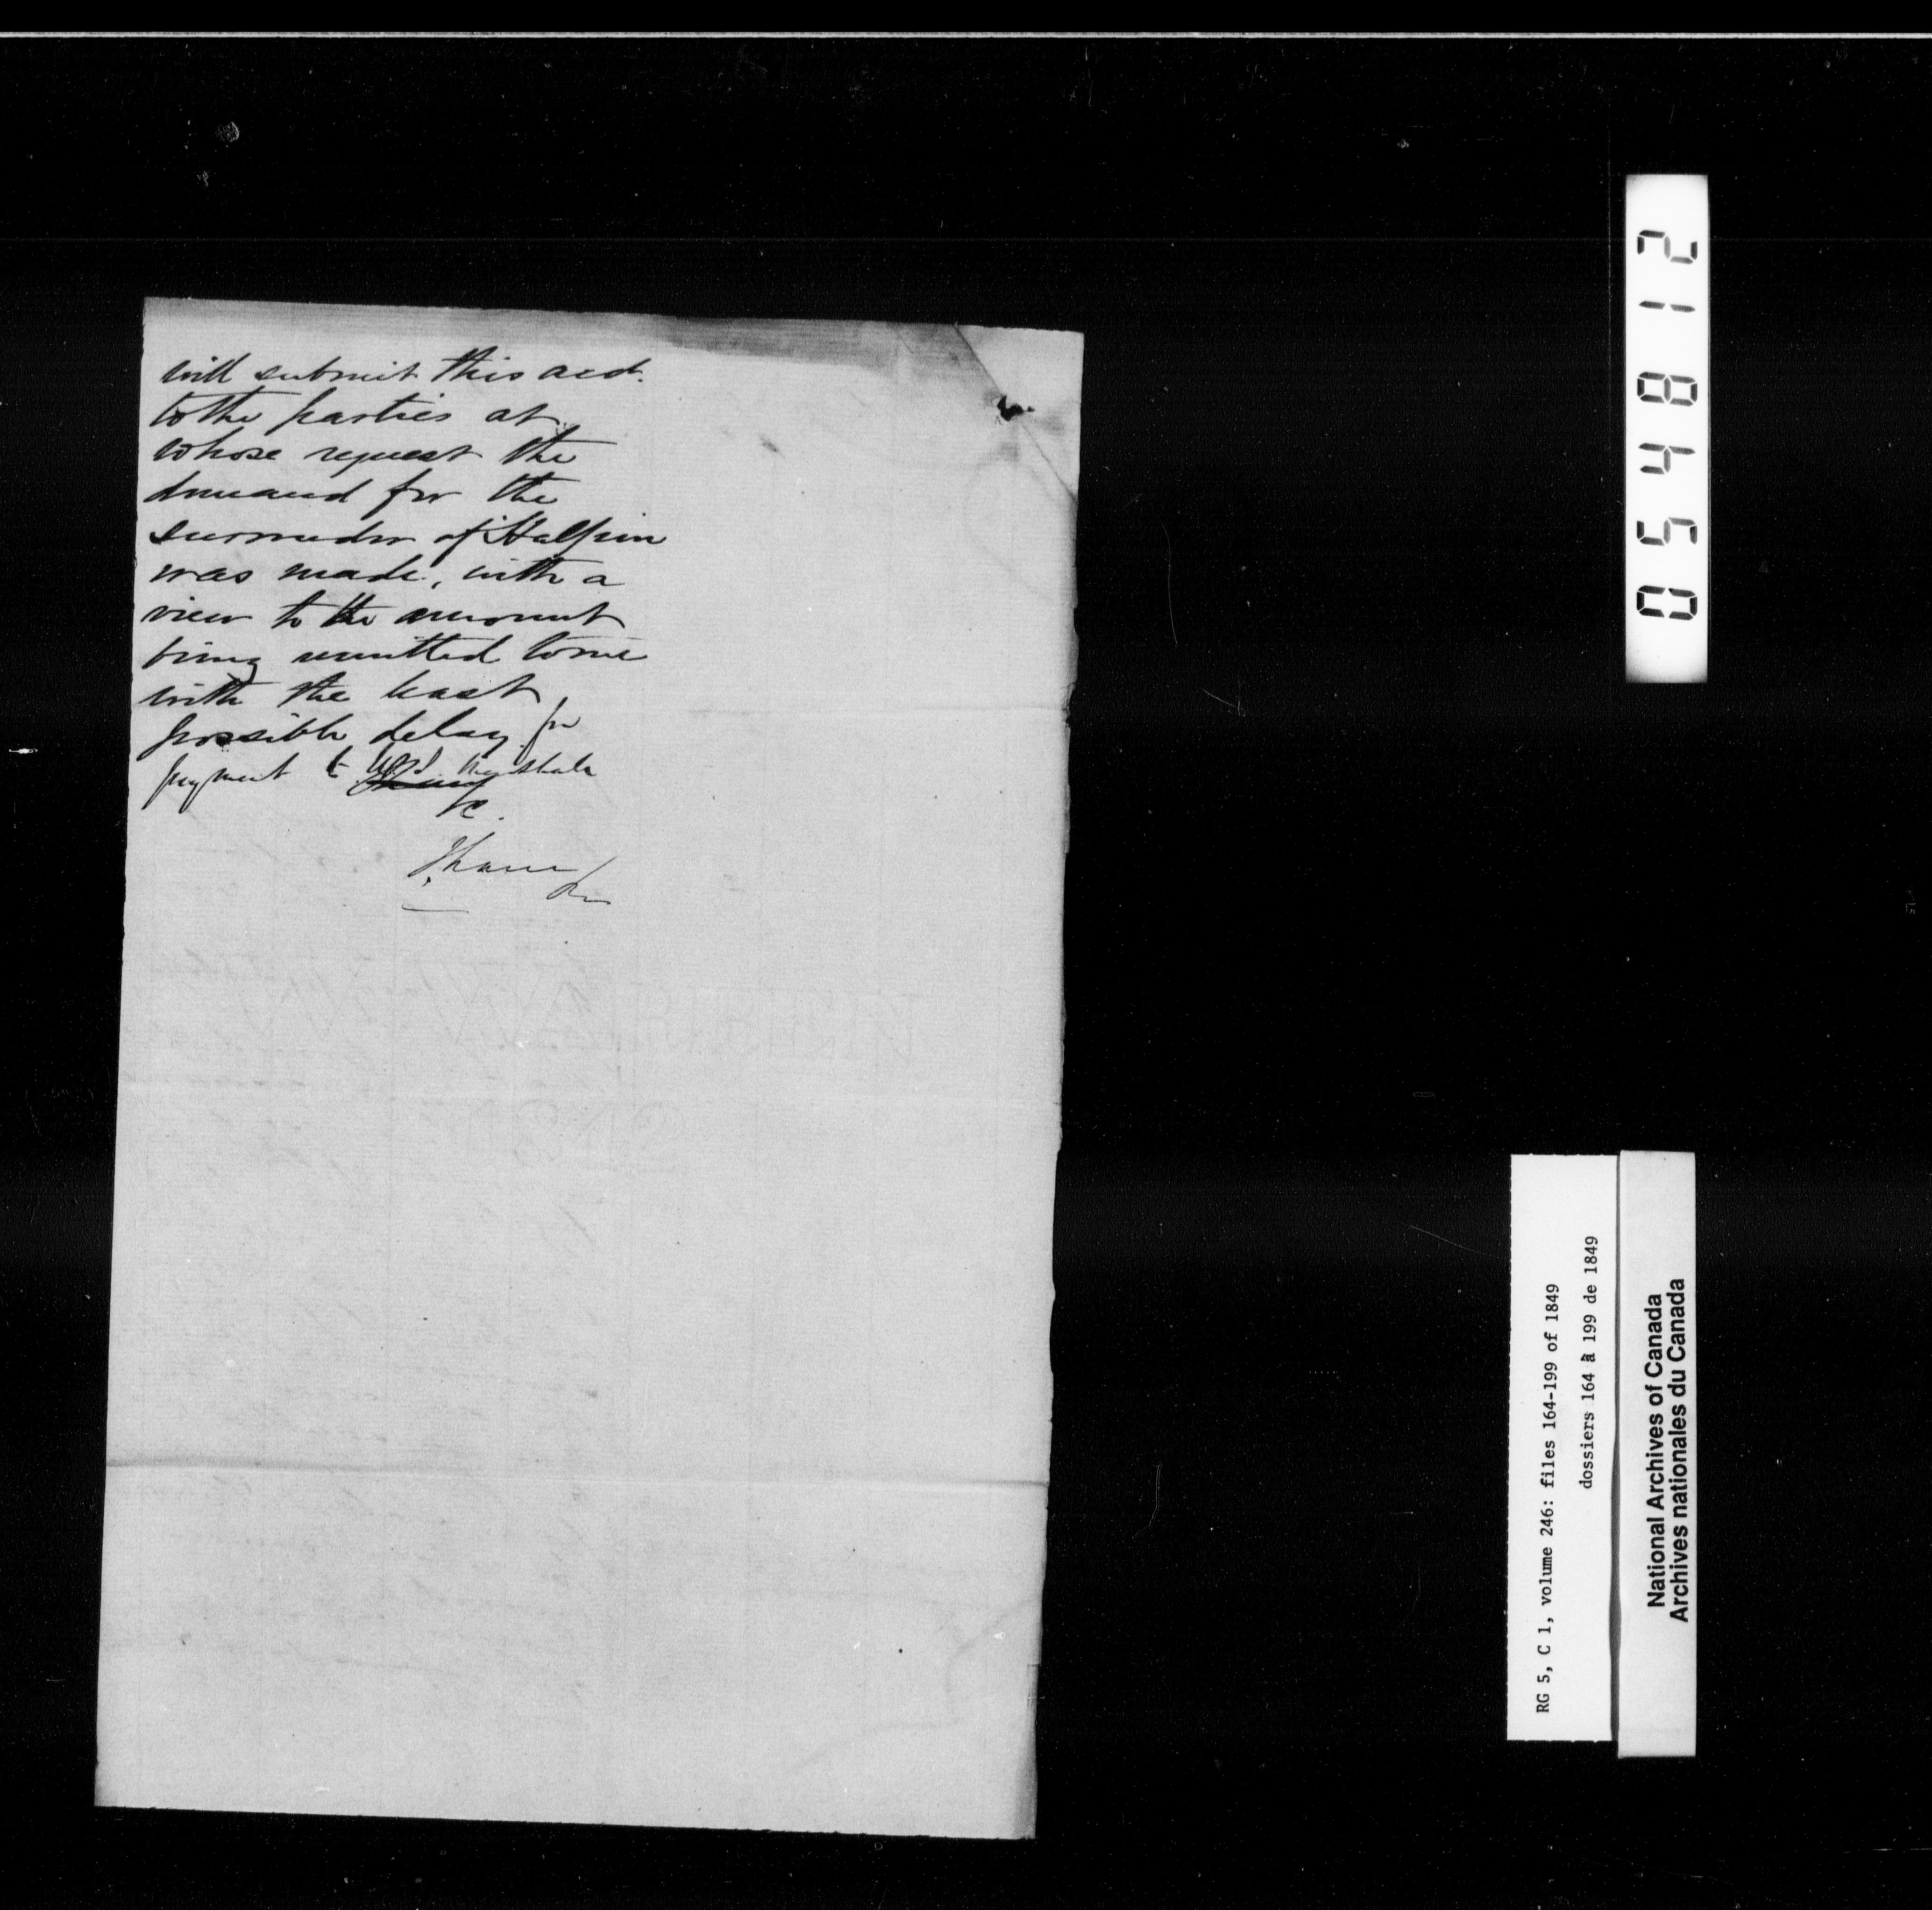 will submit this acct.
to the parties at
whose request the
demand for the
surrender of Halpin
was made, with a
view to the amount
being remitted to me
with the least
possible delay for
payment to Marshall
&c.
I have
054812
RG 5, C 1, volume 246: files 164-199 of 1849
dossiers 164 à 199 de 1849
National Archives of Canada
Archives nationales du Canada